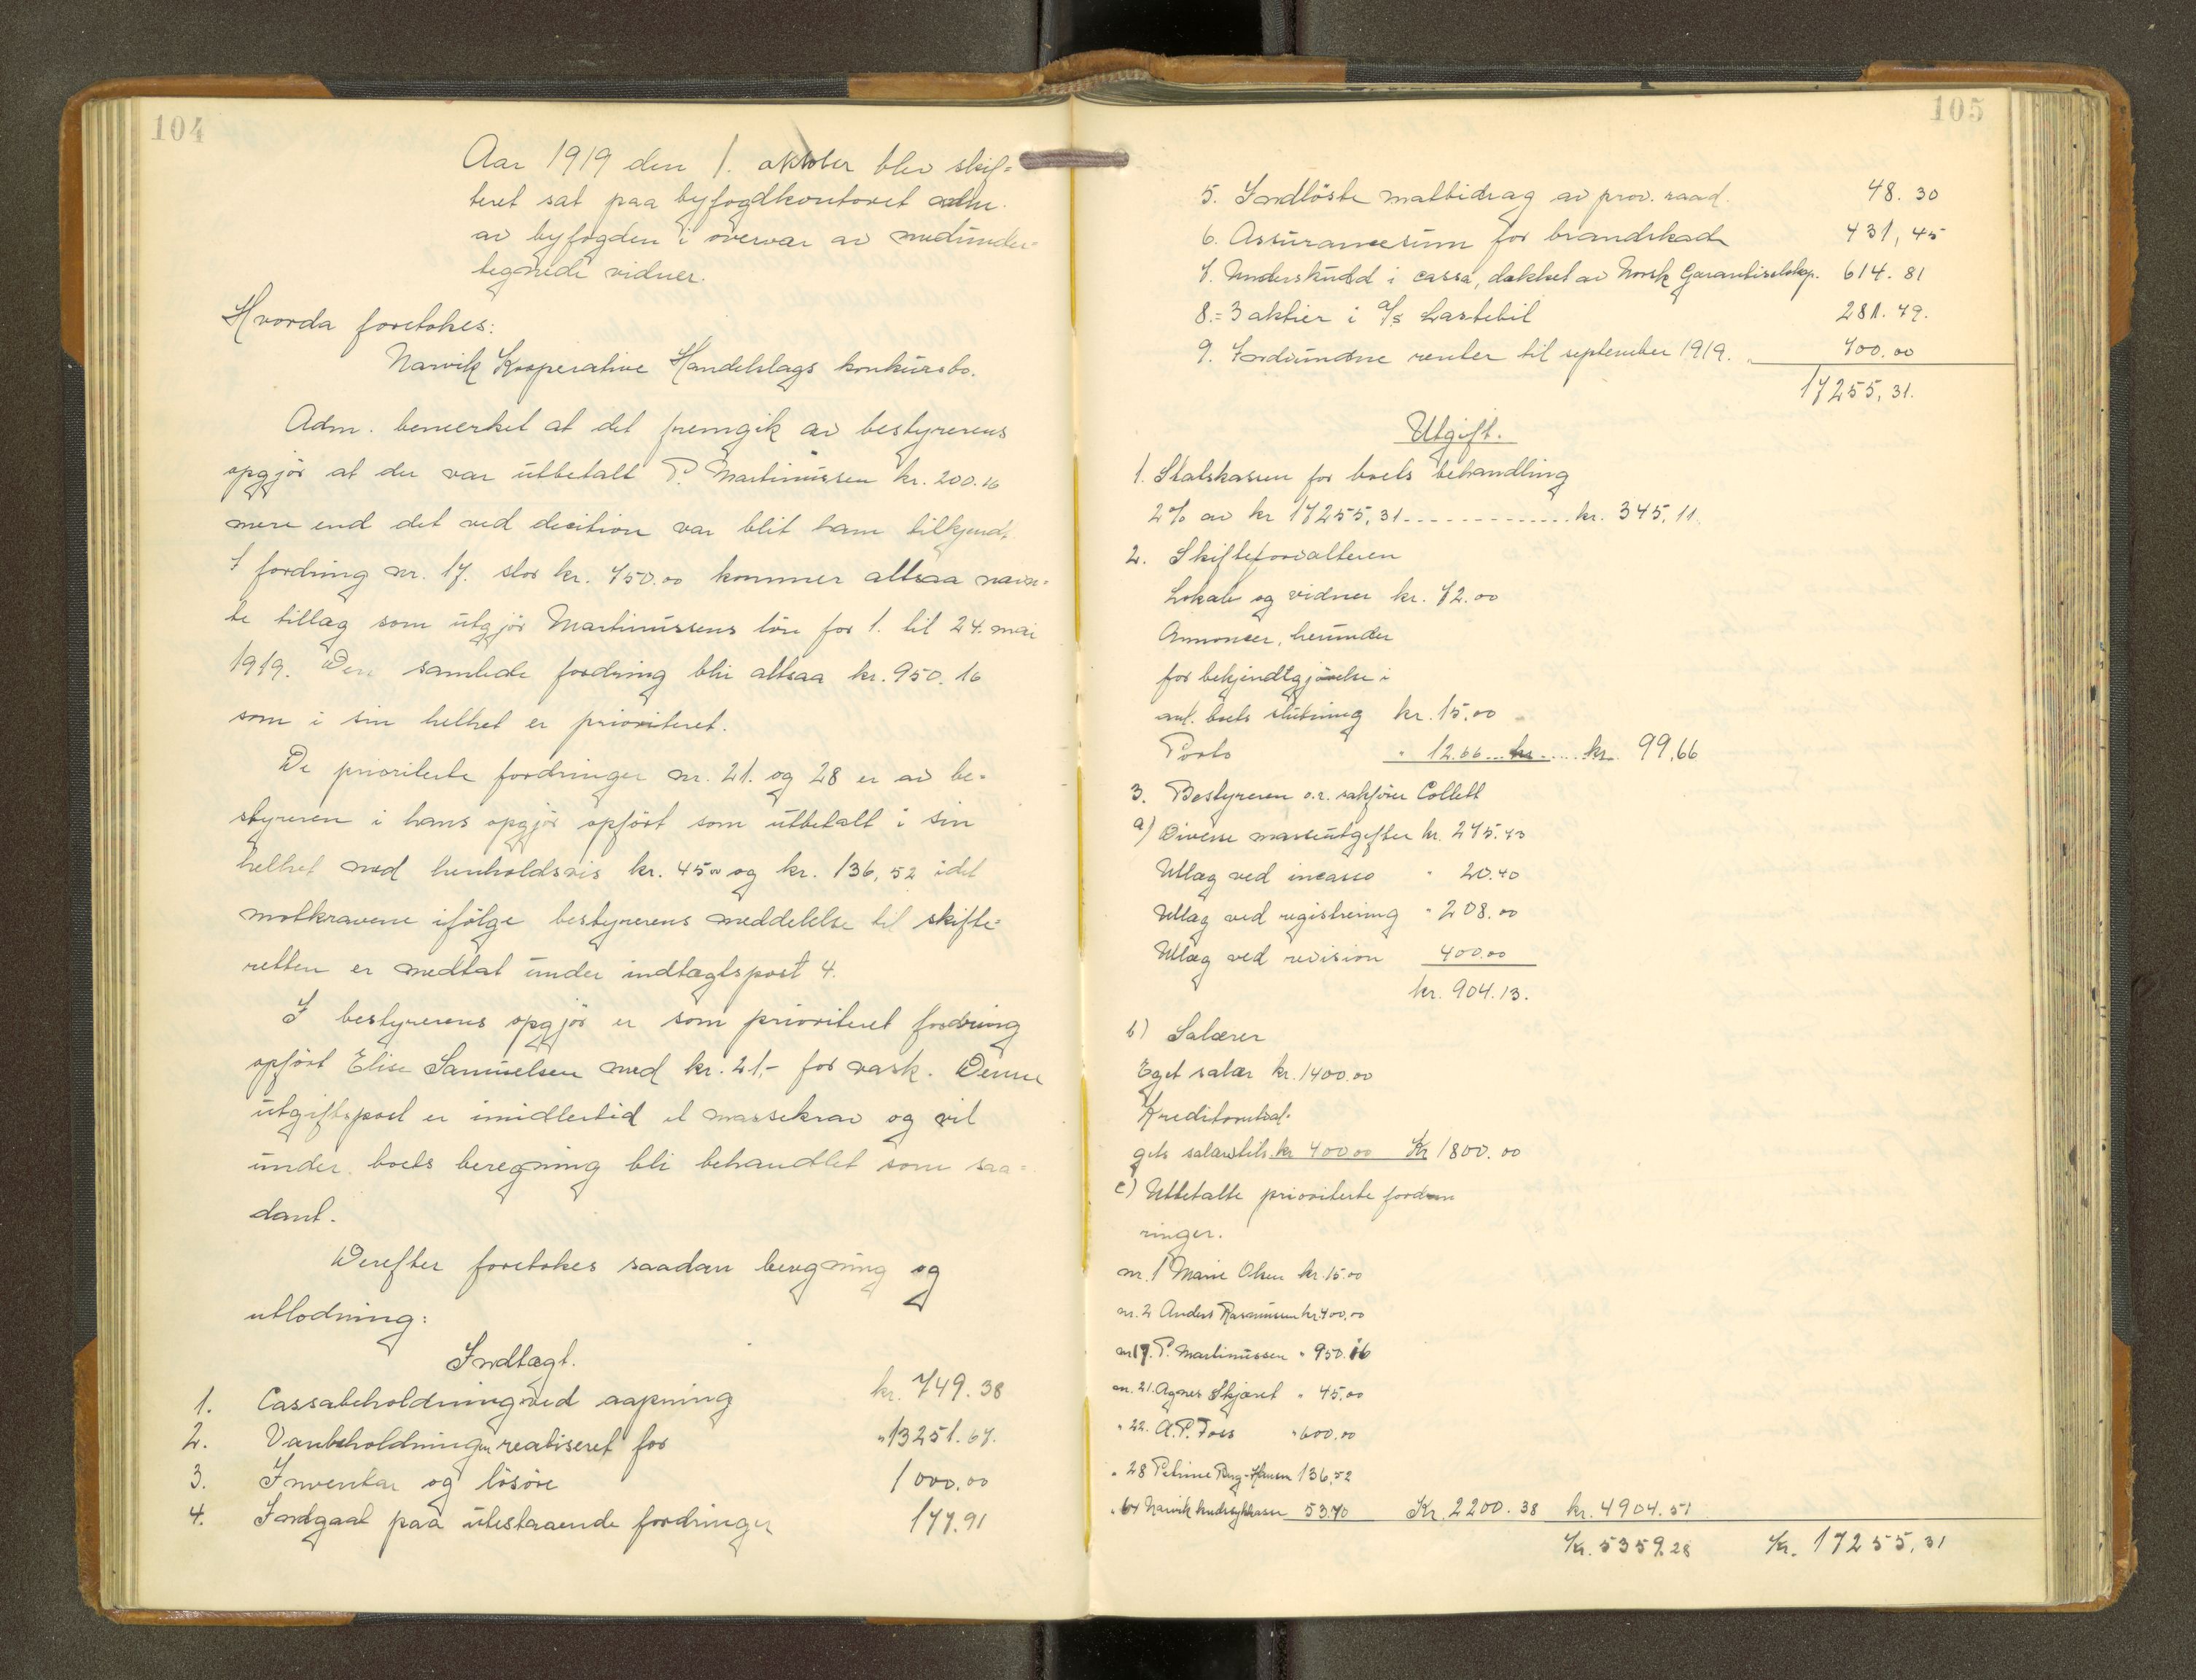 104
Aar 1919 den 1. oktober blev skif=
teret sat paa byfogdkontoret adm.
av byfogden i overvær av medunder=
tegnede vidner.
Hvorda foretokes:
Narvik Kooperative Handelslags konkursbo.
Adm. bemerket at det fremgik av bestyrerens
opgjør at der var utbetalt P. Martinussen kr. 200.16
mere end det ved decition var blit ham tilkjendt.
I fordring nr. 17. stor kr. 750.00 kommer altsaa nævn=
te tillæg som utgjør Martinussens løn for 1. til 24. mai
1919. Den samlede fordring blir altsaa kr. 950.16
som i sin helhet er prioriteret.
De prioriterte fordringer nr. 21. og 28 er av be-
styreren i hans opgjør opført som utbetalt i sin
helhet med henholdsvis kr. 45.00 og kr. 136,52 idet
motkravene ifølge bestyrerens meddelelse til skifte=
retten er medtat under indtægtspost 4.
I bestyrerens opgjør er som prioriteret fordring
opført Elise Samuelsen med kr. 21,- for vask. Denne
utgiftspost er imidlertid et massekrav og vil
under boets beregning bli behandlet som saa=
dant.
Derefter foretokes saadan beregning og
utlodning:
Indtægt.
1. Cassabeholdning ved aapning kr. 749.38
2. Varebeholdningen realiseret for " 13251.67.
3. Inventar og løsøre 1000.00
4. Indgaat paa utestaaende fordringer 177.91
105
5. Indløste matbidrag av prov. raad. 48.30
6. Assurancesum for brandskade 431,45
7. Underskudd i cassa, dækket av Norsk Garantiselskap. 614.81
8. = 3 aktier i A/S Lastebil 281.79.
9. Indvundne renter til september 1919. " 700.00
17255,31.
Utgift.
1. Statskassen for boets behandling
2% av kr 17255,31 ............. kr. 345,11.
2. Skifteforvalteren
Lokale og vidner kr. 72.00
Annoncer, herunder
for bekjendtgjørelse i
anl. boets slutning kr. 15.00
Porto " 12.66 kr .... kr. 99,66
3. Bestyreren o.r. sakfører Collett
a) Diverse masseutgifter kr. 275.73
Utlæg ved incasso " 20.40
Utlæg ved registrering " 208.00
Utlæg ved revision 400.00
kr. 904.13.
b) Salærer
Eget salær kr. 1400.00
Kreditorutval-
gets salær tils. kr 400.00 Kr 1800.00
c) Utbetalte prioriterte ford
ringer.
nr. 1 Marie Olsen kr. 15.00
nr. 2 Anders Rasmussen kr. 400.00
nr 17. P. Martinussen " 950.16
nr. 21. Agnes Skjæret " 45.00
" 22. A.P. Foss " 600.00
" 28 Petrine Berg-Hansen 136,52
" 64 Narvik kredssykekasse 53.70 Kr. 2200.38 kr. 4904.51
Kr. 5359.28 Kr. 17255,31